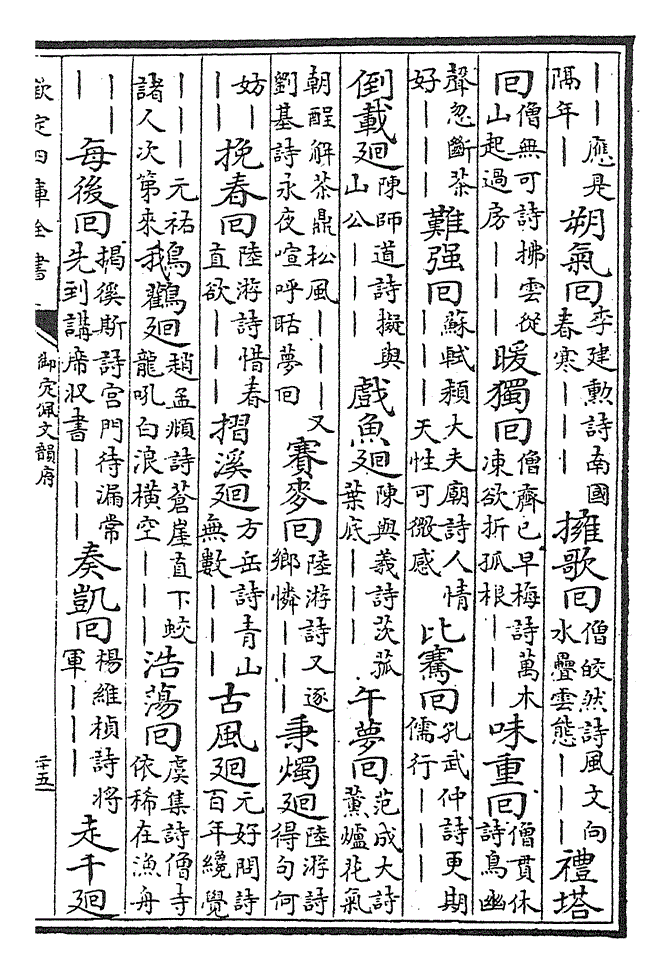 ｜｜應是隔年｜｜朔氣回李建勲詩南國春寒｜｜｜擁歌回僧皎然詩風文向水疊雲態｜｜｜禮塔
回僧無可詩拂雲從山起過房｜｜｜暖獨回僧齊己早梅詩萬木凍欲折孤根｜｜｜味重回僧貫休詩鳥幽
聲忽斷茶好｜｜｜難强回蘇軾潁大夫廟詩人情｜｜｜天性可微感比騫回孔武仲詩更期儒行｜｜｜
倒載廻陳師道詩擬與山公｜｜｜戲魚廻陳與義詩茨菰葉底｜｜｜午夢回范成大詩薰爐花氣
朝酲解茶鼎松風｜｜｜又劉基詩永夜喧呼聒夢回賽麥回陸游詩又逐鄉憐｜｜｜秉燭廻陸游詩得句何
妨｜｜｜挽春回陸游詩惜春直欲｜｜｜摺溪廻方岳詩青山無數｜｜｜古風廻元好問詩百年纔覺
｜｜｜元祐諸人次第來鵝鸛廻趙孟頫詩蒼崖直下蛟龍吼白浪橫空｜｜｜浩蕩回虞集詩僧寺依稀在漁舟
｜｜｜每後回揭徯斯詩宮門待漏常先到講席収書｜｜｜奏凱回楊維楨詩將軍｜｜｜走千廻
欽定四庫全書
御定佩文韻府
二十五